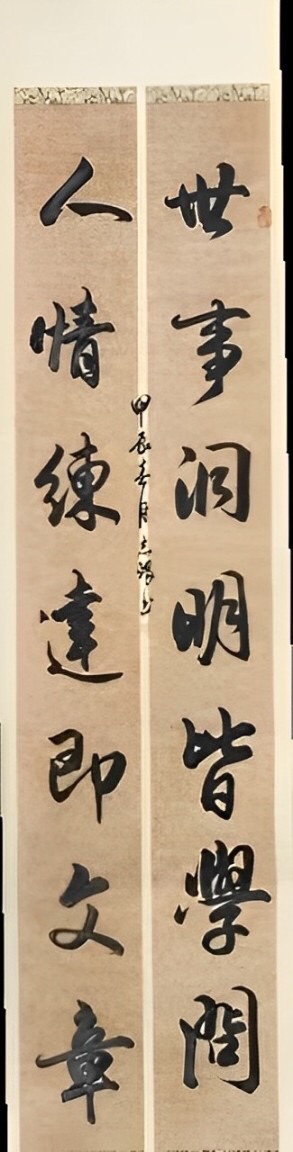 世事洞明皆學問
人情練達即文章
甲辰春月志強書